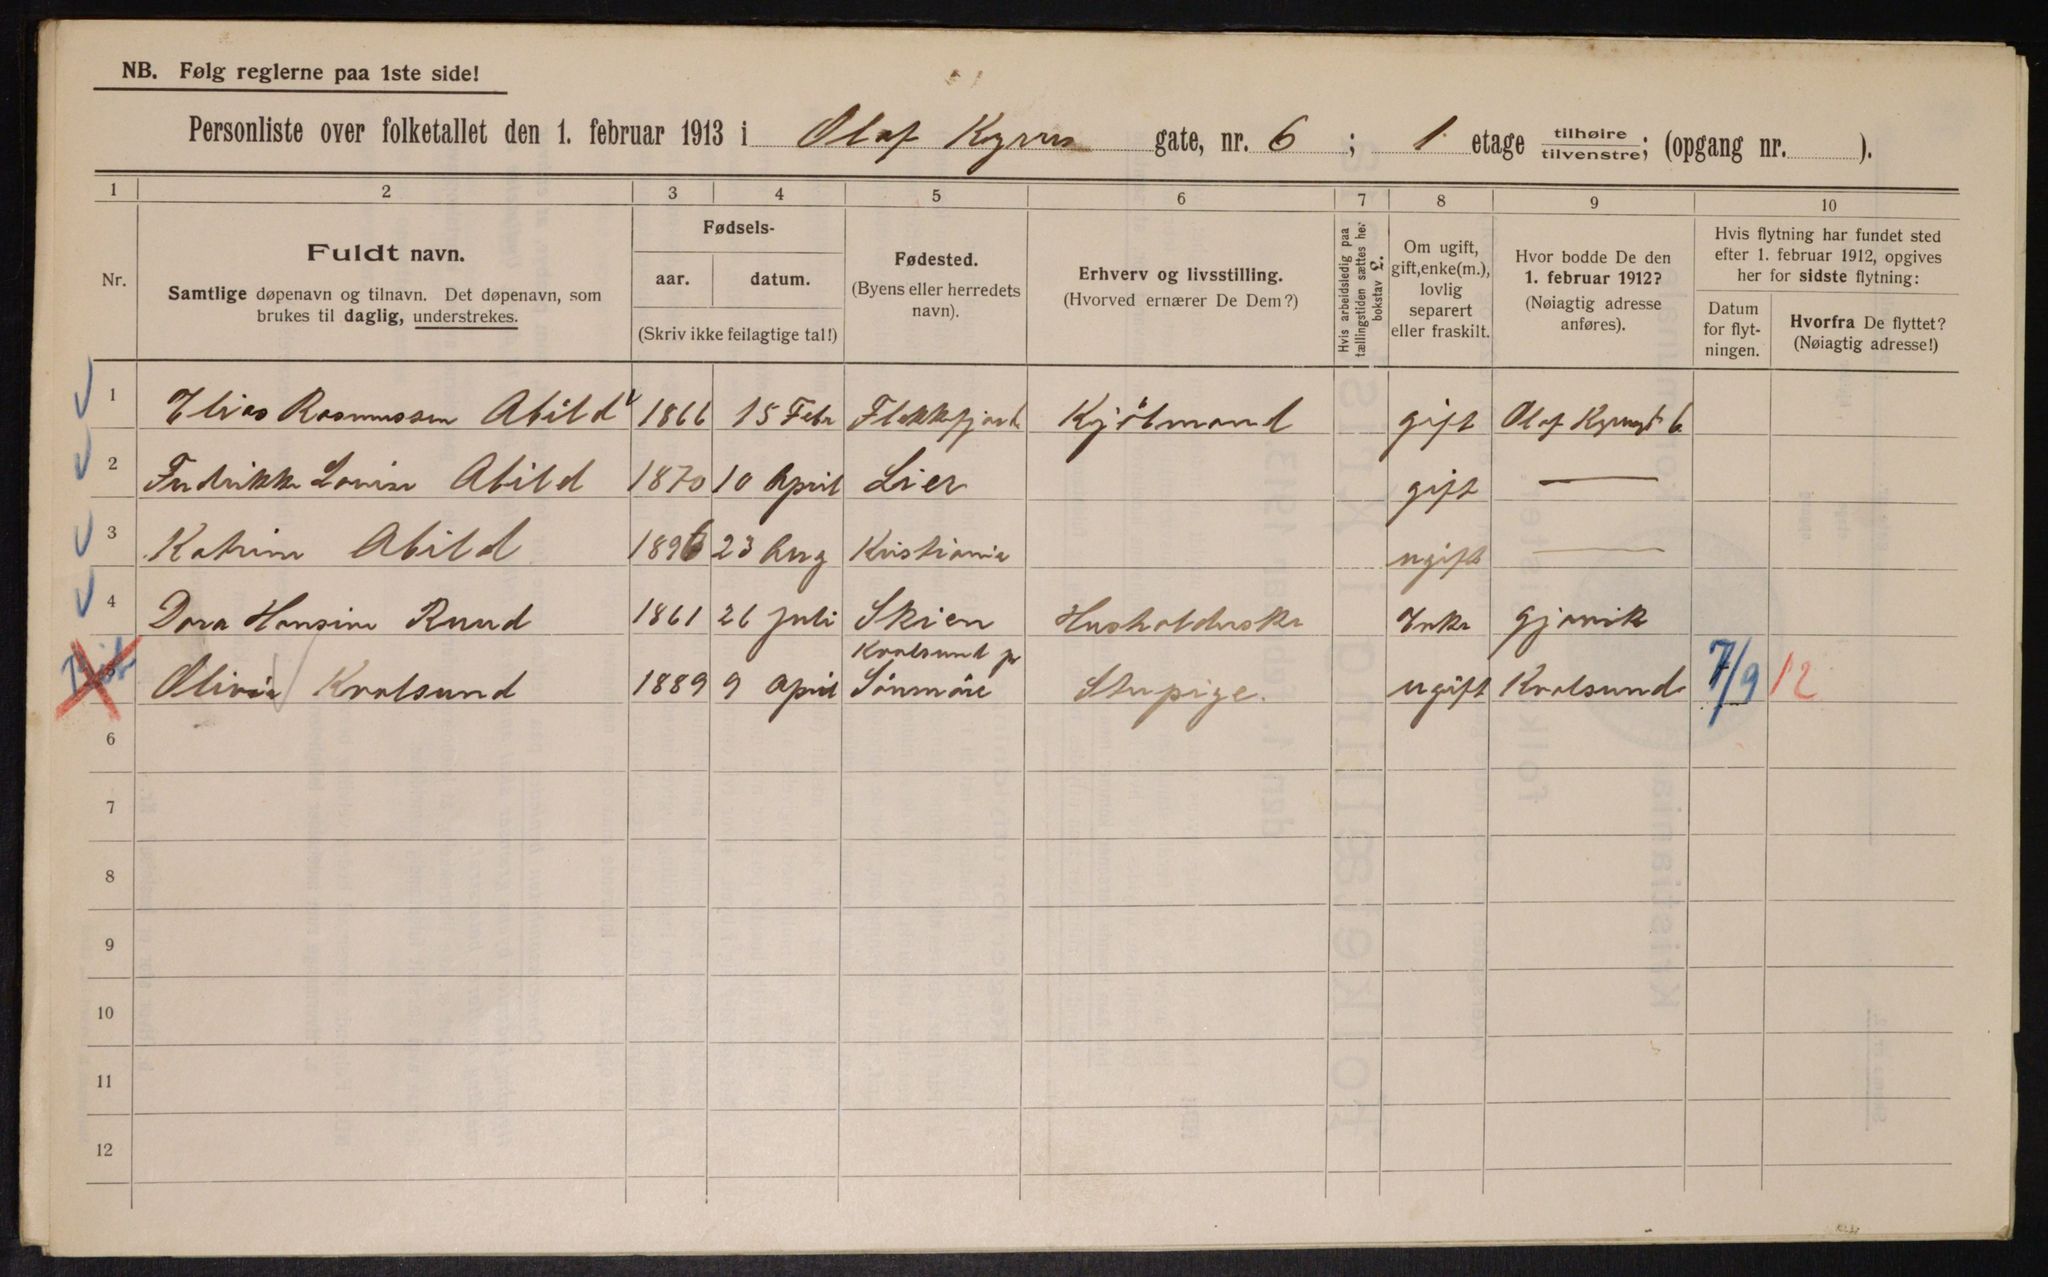 NB. Følg reglerne paa 1ste side!
Personliste over folketallet den 1. februar 1913 i Olaf Kyrres gate, nr. 6 ; 1 etage tilhøire/tilvenstre; (opgang nr. ).
1 2 3 4 5 6 7 8 9 10
Nr.
Fuldt navn.
Samtlige døpenavn og tilnavn. Det døpenavn, som
brukes til daglig, understrekes.
Fødsels-
aar. datum.
(Skriv ikke feilagtige tal!)
Fødested.
(Byens eller herredets
navn).
Erhverv og livsstilling.
(Hvorved ernærer De Dem?)
Hvis arbeidsledig paa
tællingstiden sættes her
bokstav L.
Om ugift,
gift, enke(m.),
lovlig
separert
eller fraskilt.
Hvor bodde De den
1. februar 1912?
(Nøiagtig adresse
anføres).
Hvis flytning har fundet sted
efter 1. februar 1912, opgives
her for sidste flytning:
Datum
for flyt-
ningen.
Hvorfra De flyttet?
(Nøiagtig adresse!)
1 Elias Rasmussen Abild 1866 15 Febr Flekkefjord Kjøtmand gift Olaf Kyrresgt 6
2 Fredrikke Lovise Abild 1870 10 April Lier gift —
3 Katrine Abild 1896 23 Aug Kristiania ugift —
4 Dora Hansine Ruud 1861 26 juli Skien Husholderske Enke Gjøvik
Kvalsund pr
5 Olivia Kvalsund 1889 9 April Sönmöre Stupige. ugift Kvalsund 7/9 12
6
7
8
9
10
11
12